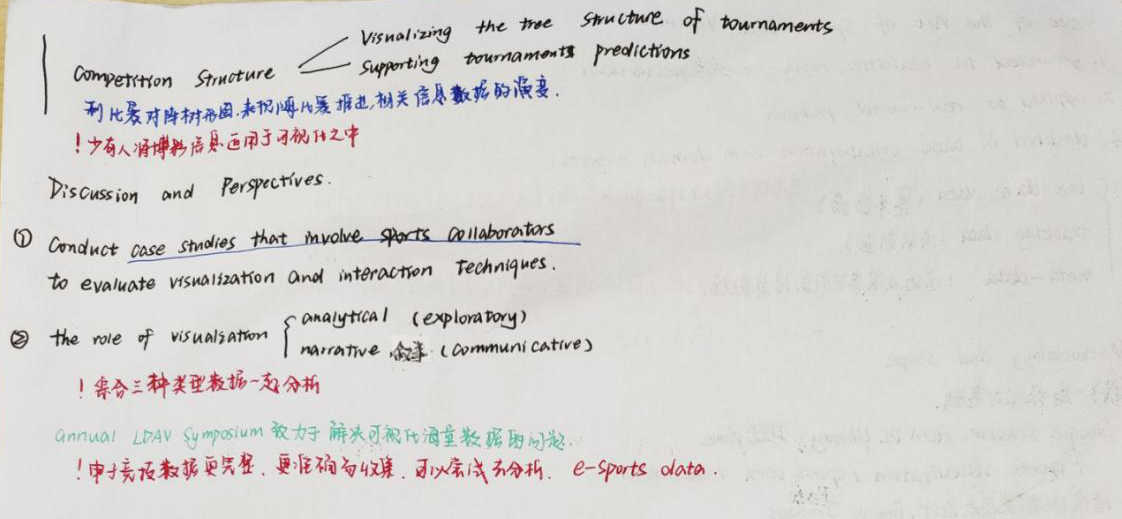 Visualizing the tree structure of tournaments
Competition Structure
Supporting tournaments predictions
利比赛对阵树形图,来视 比赛推进,相关信息数据的演变.
!少有人将博彩信息运用于可视化之中
Discussion and Perspectives.
① Conduct case studies that involve sports collaborators
to evaluate visualization and interaction techniques.
② the role of visualsation
analytical (exploratory)
narrative 叙事 (communicative)
!集合三种类型数据一起分析
annual LDAV Symposium 致力于解决可视化海量数据的问题.
!由于竞技数据更完整、更准确的收集,可以尝试去分析、e-sports data.